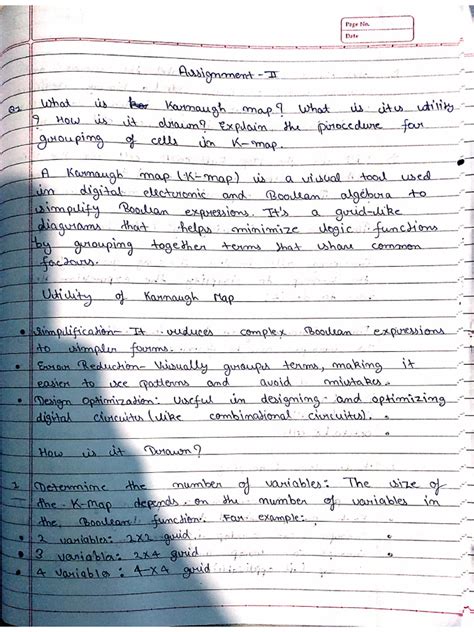 Page No.
Date
Assignment - II
Q1 What is Karnaugh map? What is its utility
? How is it drawn? Explain the procedure for
grouping of cells in K-map.
A Karnaugh map (K-map) is a visual tool used
in digital electronic and Boolean algebra to
simplify Boolean expressions. It's a grid-like
diagrams that helps minimize logic functions
by grouping together terms that share common
factors.
Utility of Karnaugh Map
• Simplification- It reduces complex Boolean expressions
to simpler forms.
• Error Reduction- Visually groups terms, making it
easier to see patterns and avoid mistakes.
• Design Optimization: Useful in designing and optimizing
digital circuits (like combinational circuits).
How is it Drawn?
Determine the number of variables: The size of
the K-Map depends on the number of variables in
the Boolean function. For example:
• 2 variables: 2x2 grid.
• 3 variables: 2x4 grid
• 4 variables: 4x4 grid